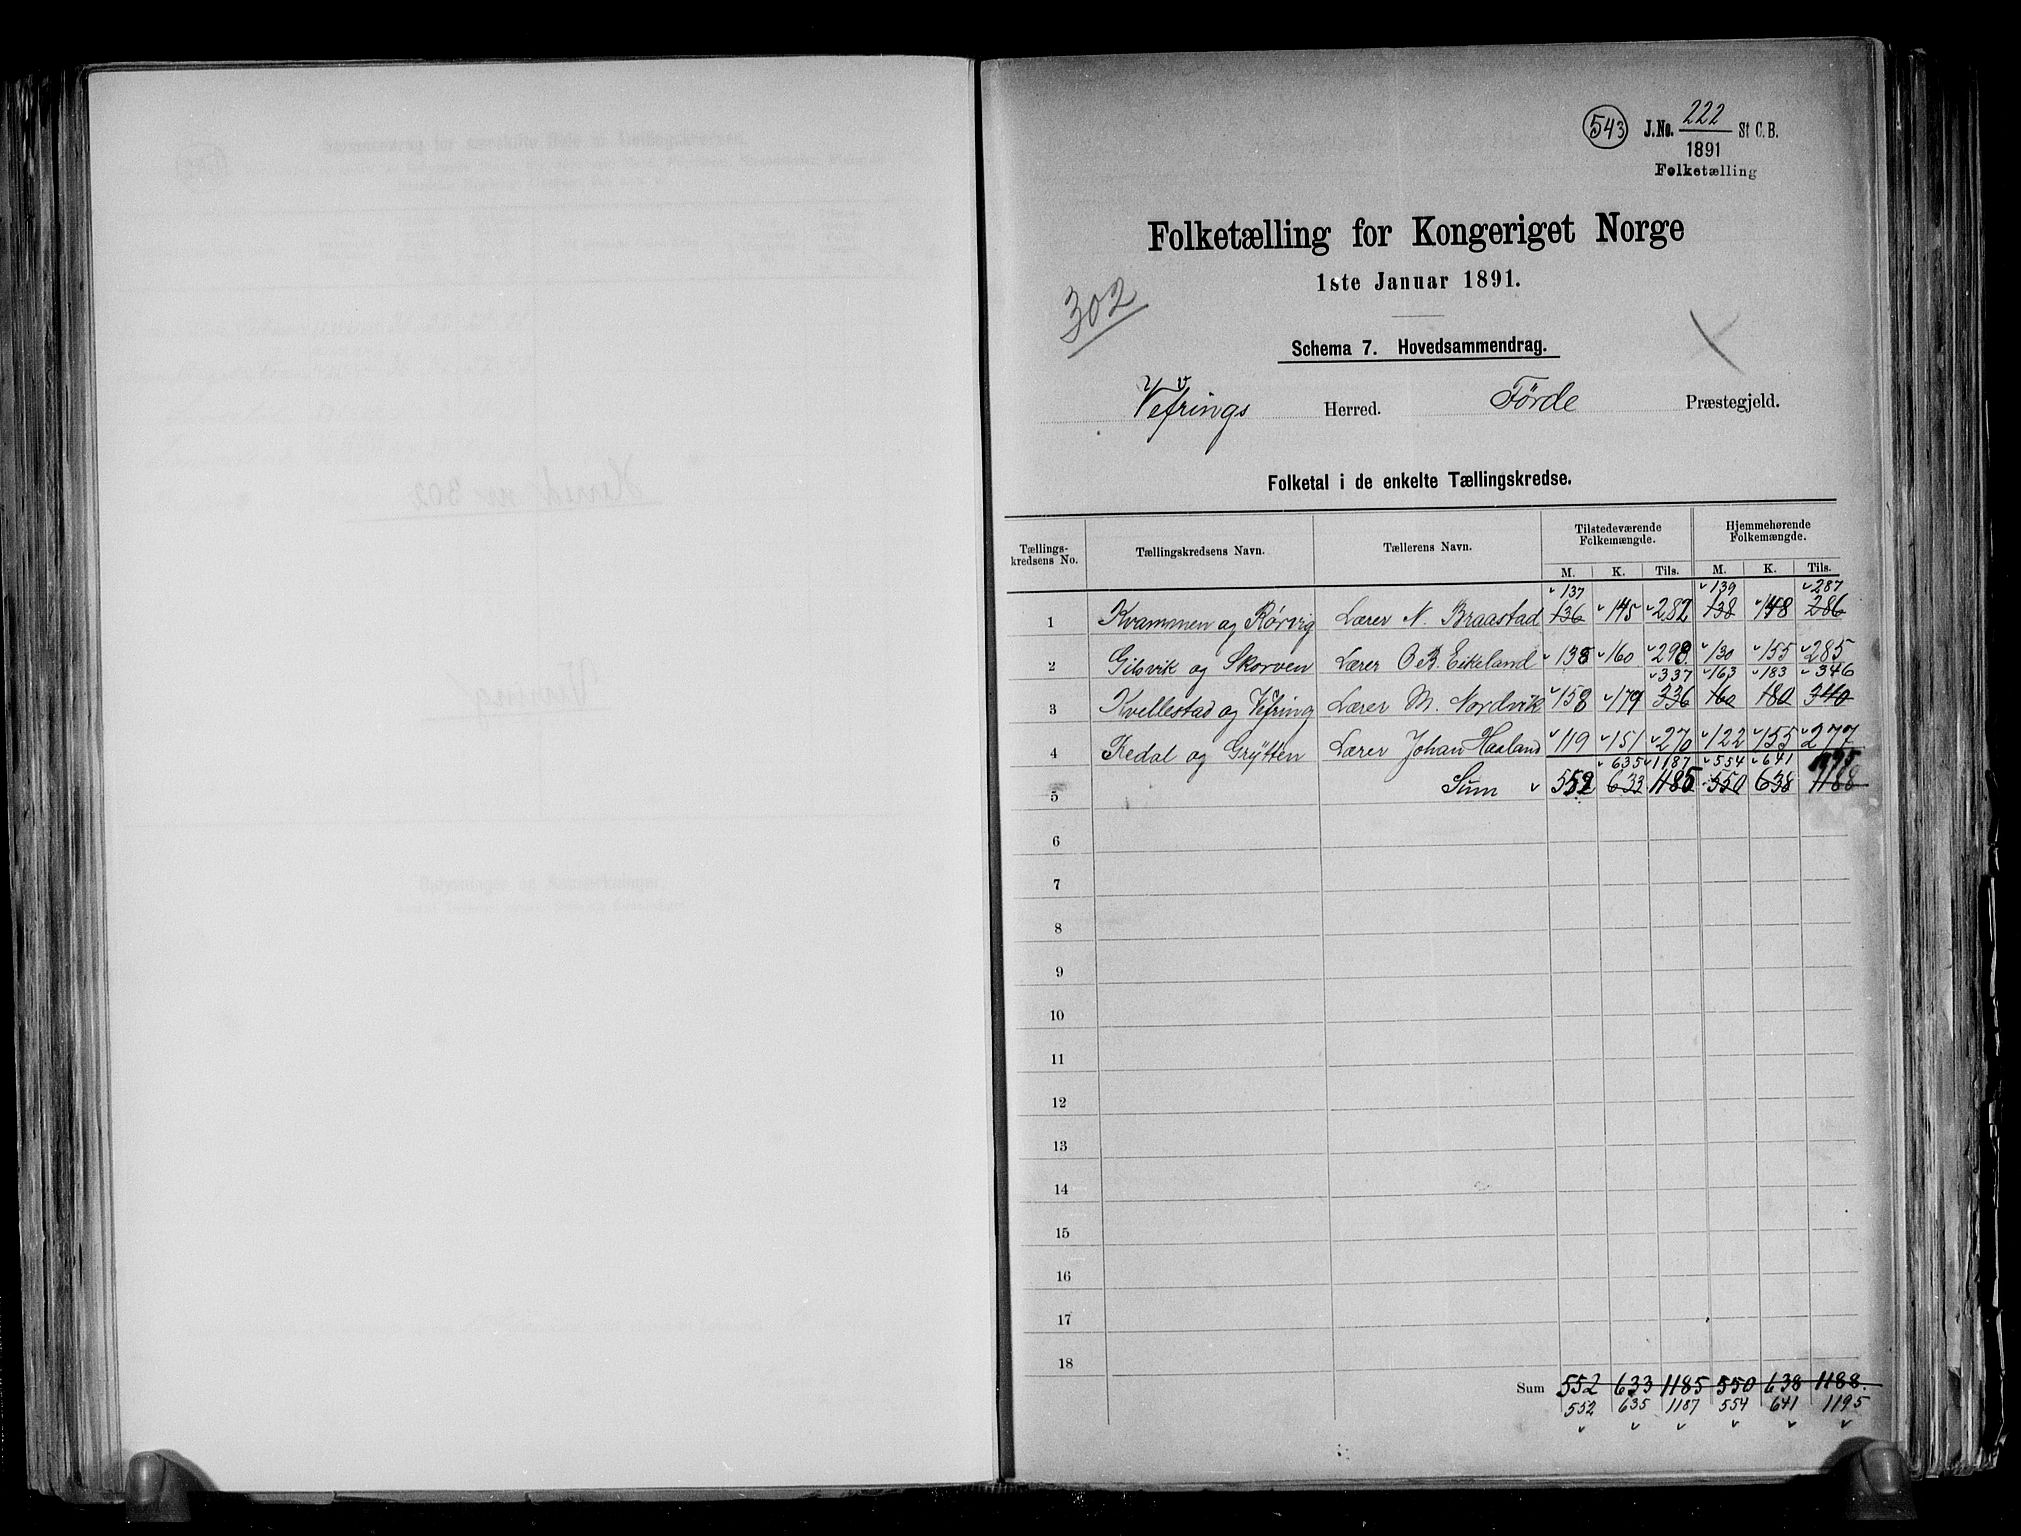 543 J.No. 222 St C.B.
1891
Folketælling
Folketælling for Kongeriget Norge
1ste Januar 1891.
302
Schema 7. Hovedsammendrag.
Vefrings Herred. Førde Præstegjeld.
Folketal i de enkelte Tællingskredse.
Tællings-kredsens No. Tællingskredsens Navn. Tællerens Navn. Tilstedeværende Folkemængde. Hjemmehørende Folkemængde.
M. K. Tils. M. K. Tils.
137 139 287
1 Kvammen og Rørvig Lærer N. Braastad 136 145 282 138 148 286
2 Gilsvik og Skorven Lærer O. B. Eikeland 138 160 298 130 155 285
337 163 183 346
3 Kvellestad og Vefring Lærer M. Nordvik 158 179 336 160 180 340
4 Redal og Grytten Lærer Johan Haaland 119 151 270 122 155 277
635 1187 554 641 1195
5 Sum 552 633 1185 550 638 1188
6
7
8
9
10
11
12
13
14
15
16
17
18
Sum 552 633 1185 550 638 1188.
552 635 1187 554 641 1195